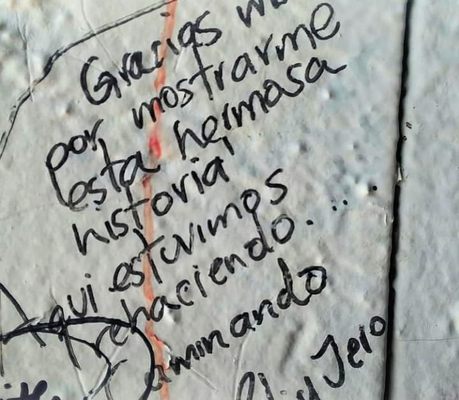 Gracias
por mostrarme
esta hermosa
historia
Aqui estuvimos
rehaciendo....
Caminando
y Jero